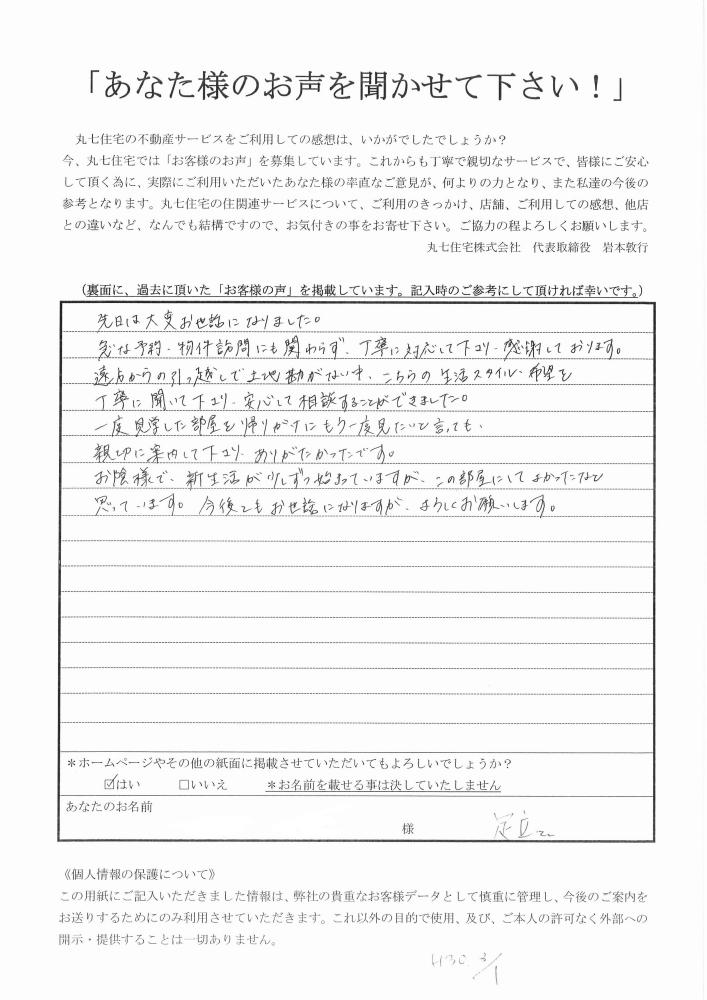 「あなた様のお声を聞かせて下さい！」
丸七住宅の不動産サービスをご利用しての感想は、いかがでしたでしょうか？
今、丸七住宅では「お客様のお声」を募集しています。これからも丁寧で親切なサービスで、皆様にご安心
して頂く為に、実際にご利用いただいたあなた様の率直なご意見が、何よりの力となり、また私達の今後の
参考となります。丸七住宅の住関連サービスについて、ご利用のきっかけ、店舗、ご利用しての感想、他店
との違いなど、なんでも結構ですので、お気付きの事をお寄せ下さい。ご協力の程よろしくお願いします。
丸七住宅株式会社　代表取締役　岩本敦行
（裏面に、過去に頂いた「お客様の声」を掲載しています。記入時のご参考にして頂ければ幸いです。）
先日は大変お世話になりました。
急な予約・物件訪問にも関わらず、丁寧に対応して下さり、感謝しております。
遠方からの引っ越しで土地勘がない中、こちらの生活スタイル・希望を
丁寧に聞いて下さり、安心して相談することができました。
一度見学した部屋を帰りがけにもう一度見たいと言っても、
親切に案内して下さり、ありがたかったです。
お陰様で、新生活が少しずつ始まっていますが、この部屋にしてよかったなと
思っています。今後ともお世話になりますが、よろしくお願いします。
＊ホームページやその他の紙面に掲載させていただいてもよろしいでしょうか？
☑はい　□いいえ　＊お名前を載せる事は決していたしません
あなたのお名前
様　足立
《個人情報の保護について》
この用紙にご記入いただきました情報は、弊社の貴重なお客様データとして慎重に管理し、今後のご案内を
お送りするためにのみ利用させていただきます。これ以外の目的で使用、及び、ご本人の許可なく外部への
開示・提供することは一切ありません。
H30 3/1